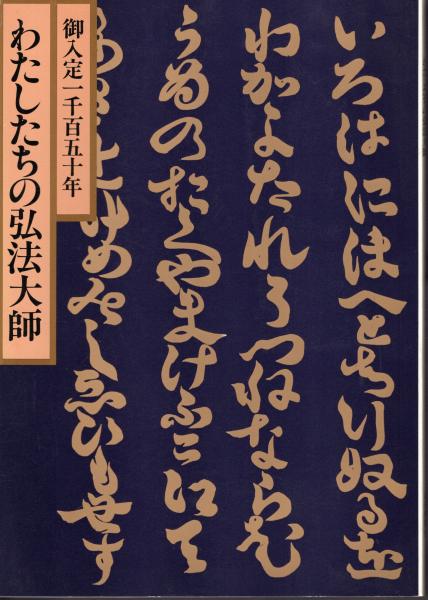 御入定一千百五十年
わたしたちの弘法大師
いろはにほへとちりぬるを
わかよたれそつねならむ
うゐのおくやまけふこえて
あさきゆめみしゑひもせす